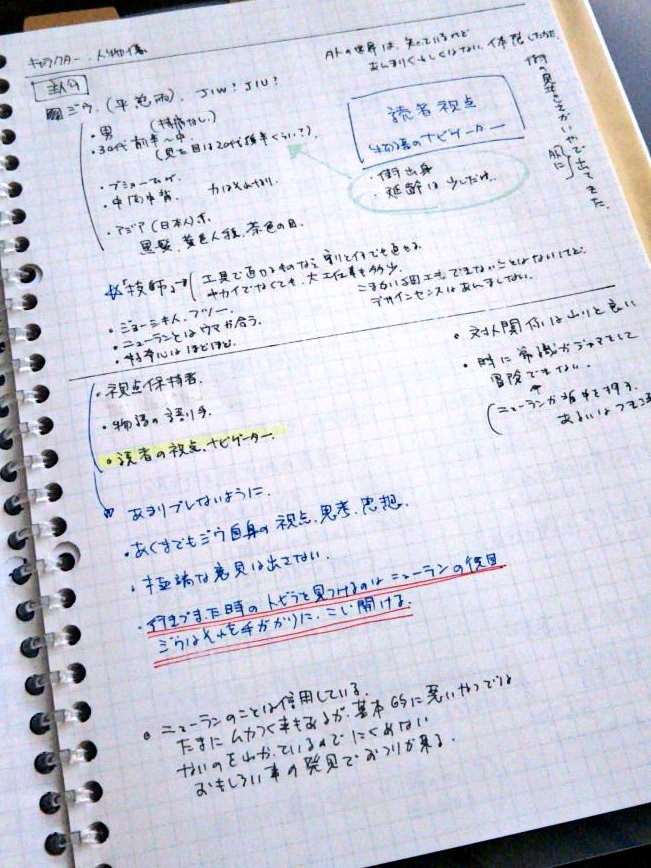 キャラクター・人物像
主人公
ジウ.(平 忽雨). JIW? JIU?
・男 (持病なし)
・30代前半〜中 (見た目は20代後半くらい?)
・中肉中背
・アジア(日本人)系
黒髪、黄色人種、茶色の目.
外の世界は、知っているけど
あんまりくわしくはない.
読者視点
物語のナビゲーター
・街出身
・延齢は少しだけ.
「技師」
工具で直るものなら割と何でも直せる
キカイでなくても、大工仕事も多少.
こまかい細工もできないことはないけど
デザインセンスはあんましない.
・ジョーシキ人、フツー.
・ニューランとはウマが合う.
・好奇心はほどほど.
・対人関係はわりと良い
・時に常識がジャマをして
冒険できない.
・視点保持者.
・物語の語り手.
・読者の視点、ナビゲーター.
あまりブレないように.
・あくまでもジウ自身の視点、思考、思想.
・極端な意見は出さない.
・行きづまった時のトビラを見つけるのはニューランの役目
ジウはそれを手がかりに、こじ開ける.
・ニューランのことは信用している.
たまにムカつく事もあるが、基本的に悪いやつでは
ないのをわかっているのでにくめない
おもしろい事の発見でおつりが来る.